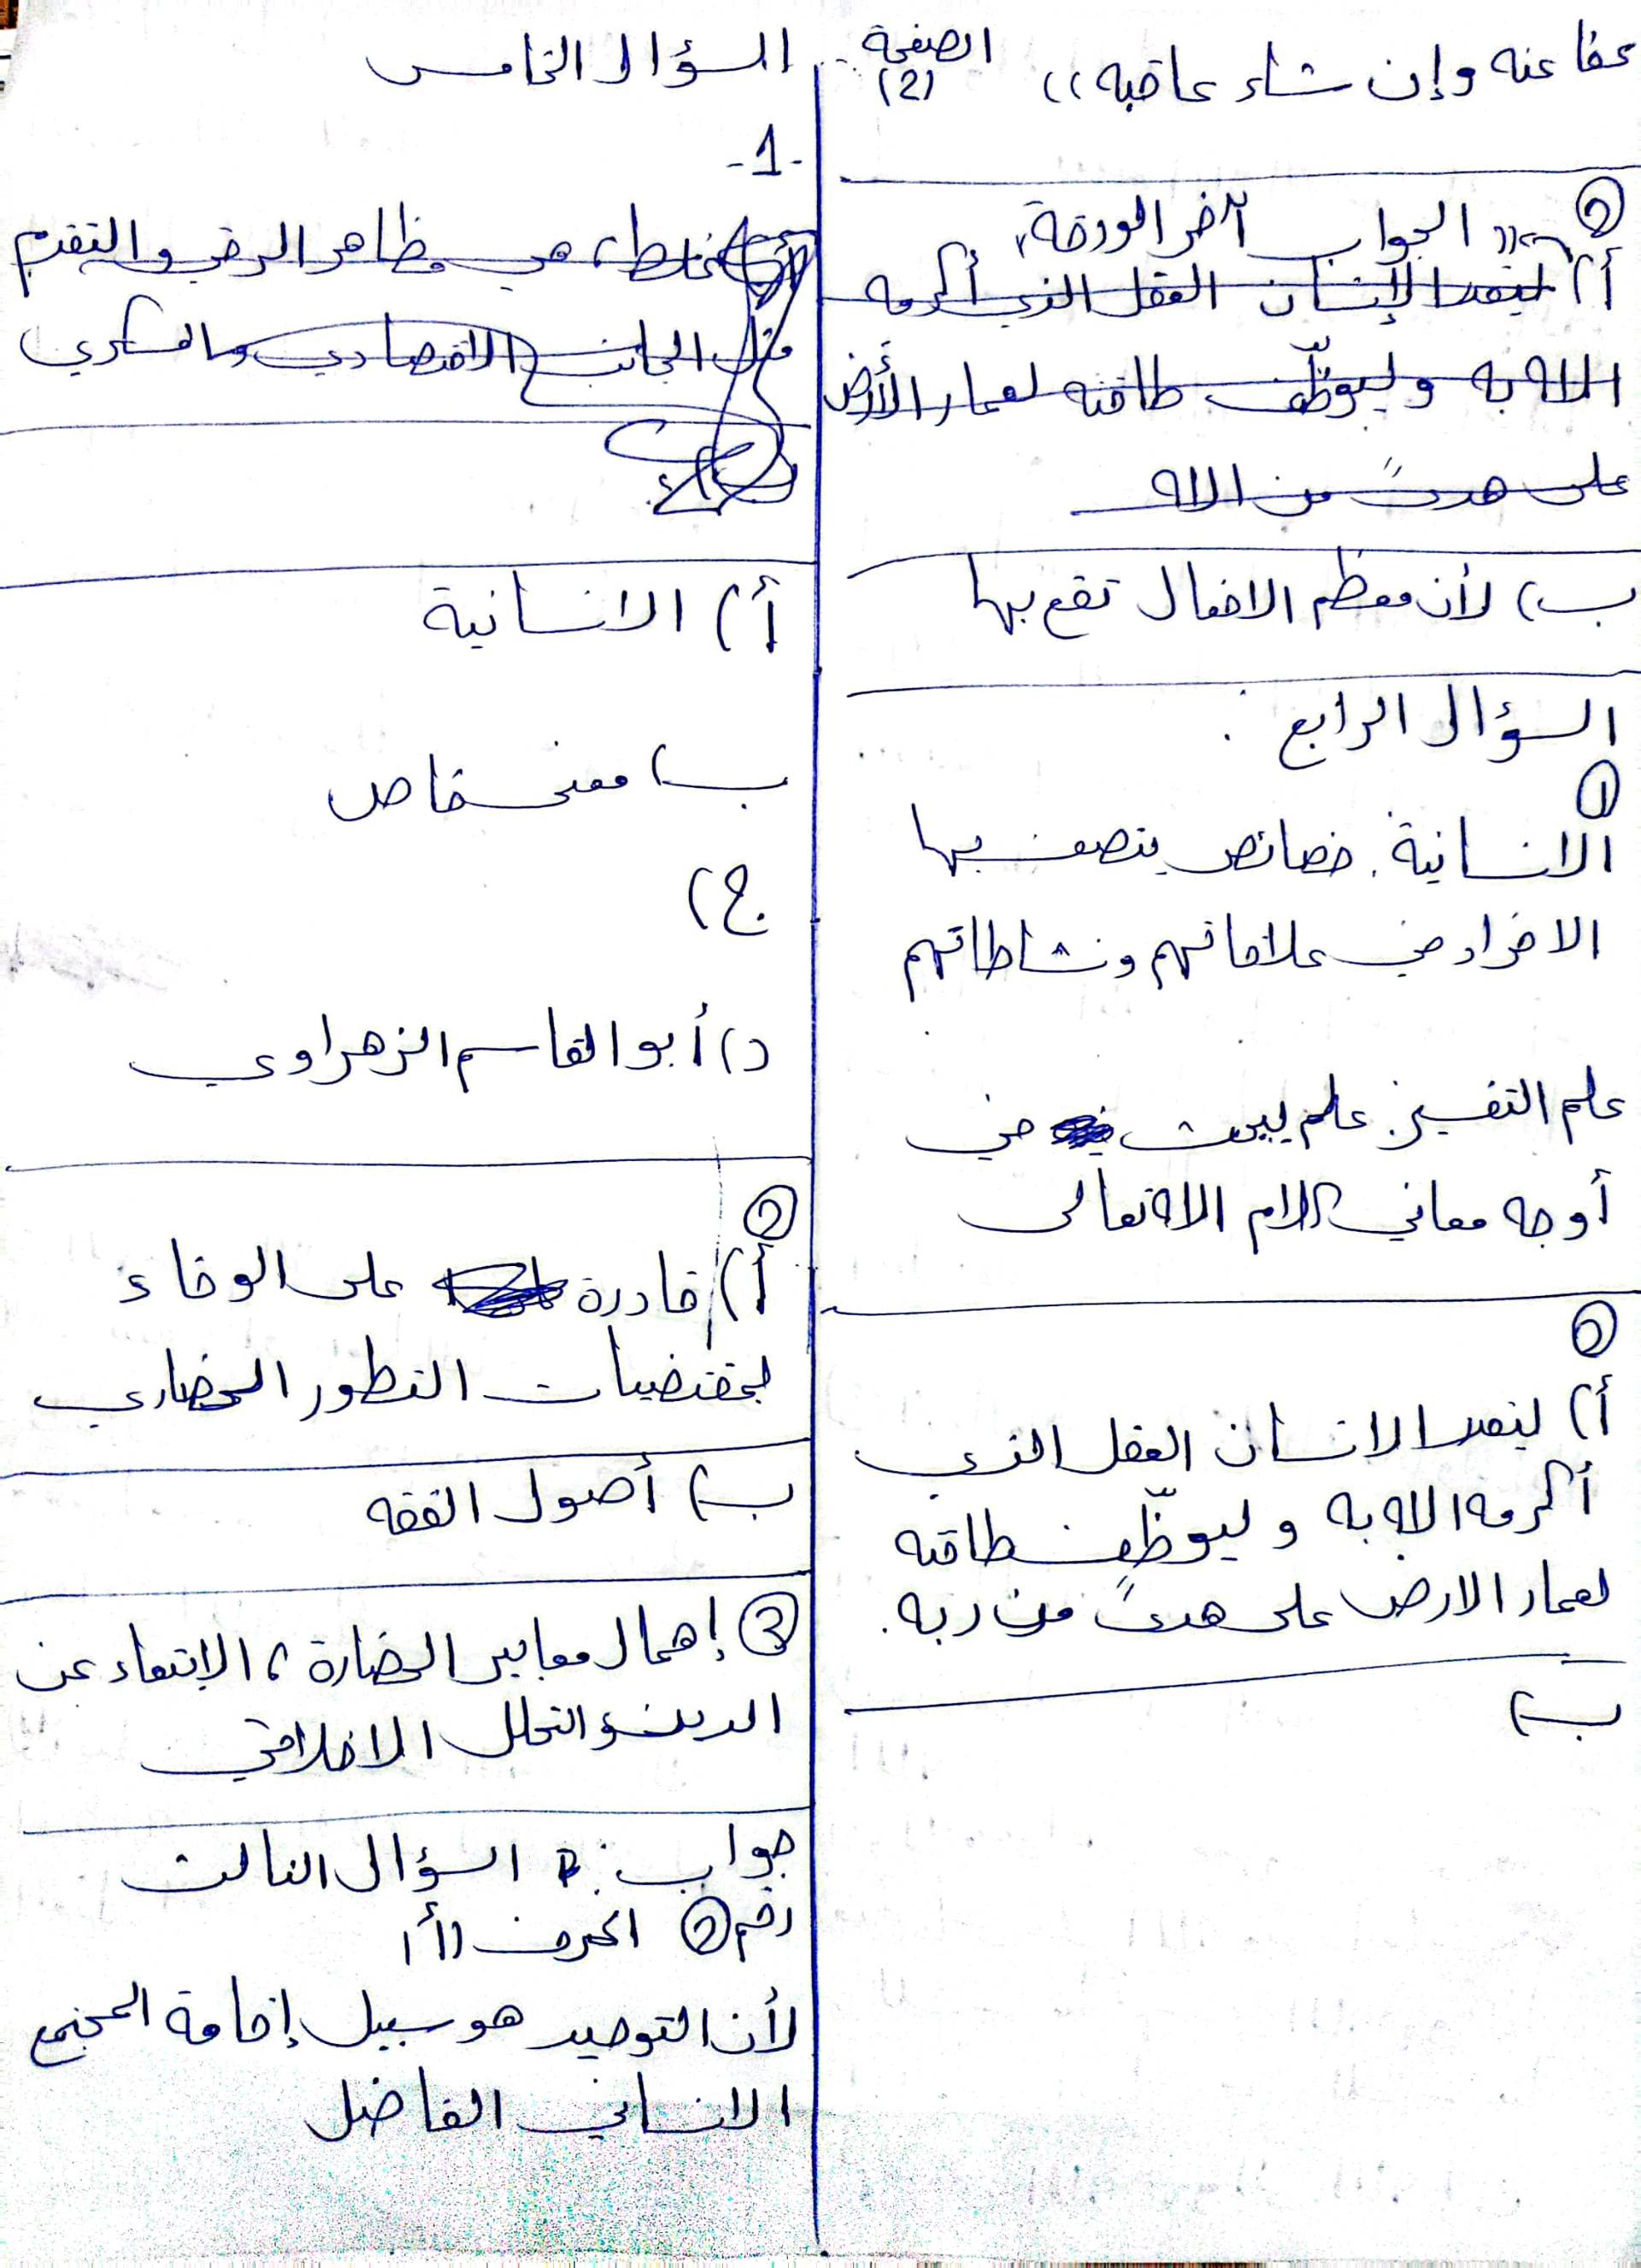 عفا عنه وإن شاء عاقبه))
الصفحة
(2)
②
((الجواب آخر الورقة))
أ) ليعبد الإنسان العقل الذي أكرمه
الله به وليوظّف طاقته لعمار الأرض
على هدىً من الله
ب) لأن معظم الافعال تقع بها
السؤال الرابع :
①
الانسانية: خصائص يتصف بها
الافراد في علاقاتهم ونشاطاتهم
علم التفسير: علم يبحث في
أوجه معاني كلام الله تعالى
②
أ) الانسان العقل الذي
أكرمه الله به وليوظّف طاقته
لعمار الارض على هدىً من ربه.
ب)
السؤال الخامس
-1-
خاطئ، هي مظاهر الرقي والتقدم
الجانب الاقتصادي والعسكري
أ) الانسانية
ب) معنى خاص
ج)
د) أبو القاسم الزهراوي
②
أ) قادرة على الوفاء
بمقتضيات التطور الحضاري
ب) أصول الفقه
③ إهمال معايير الحضارة، الابتعاد عن
الدين والتحلل الاخلاقي
جواب: السؤال الثالث
رقم ② الحرف (أ)
لأن التوحيد هو سبيل إقامة المجتمع
الانساني الفاضل